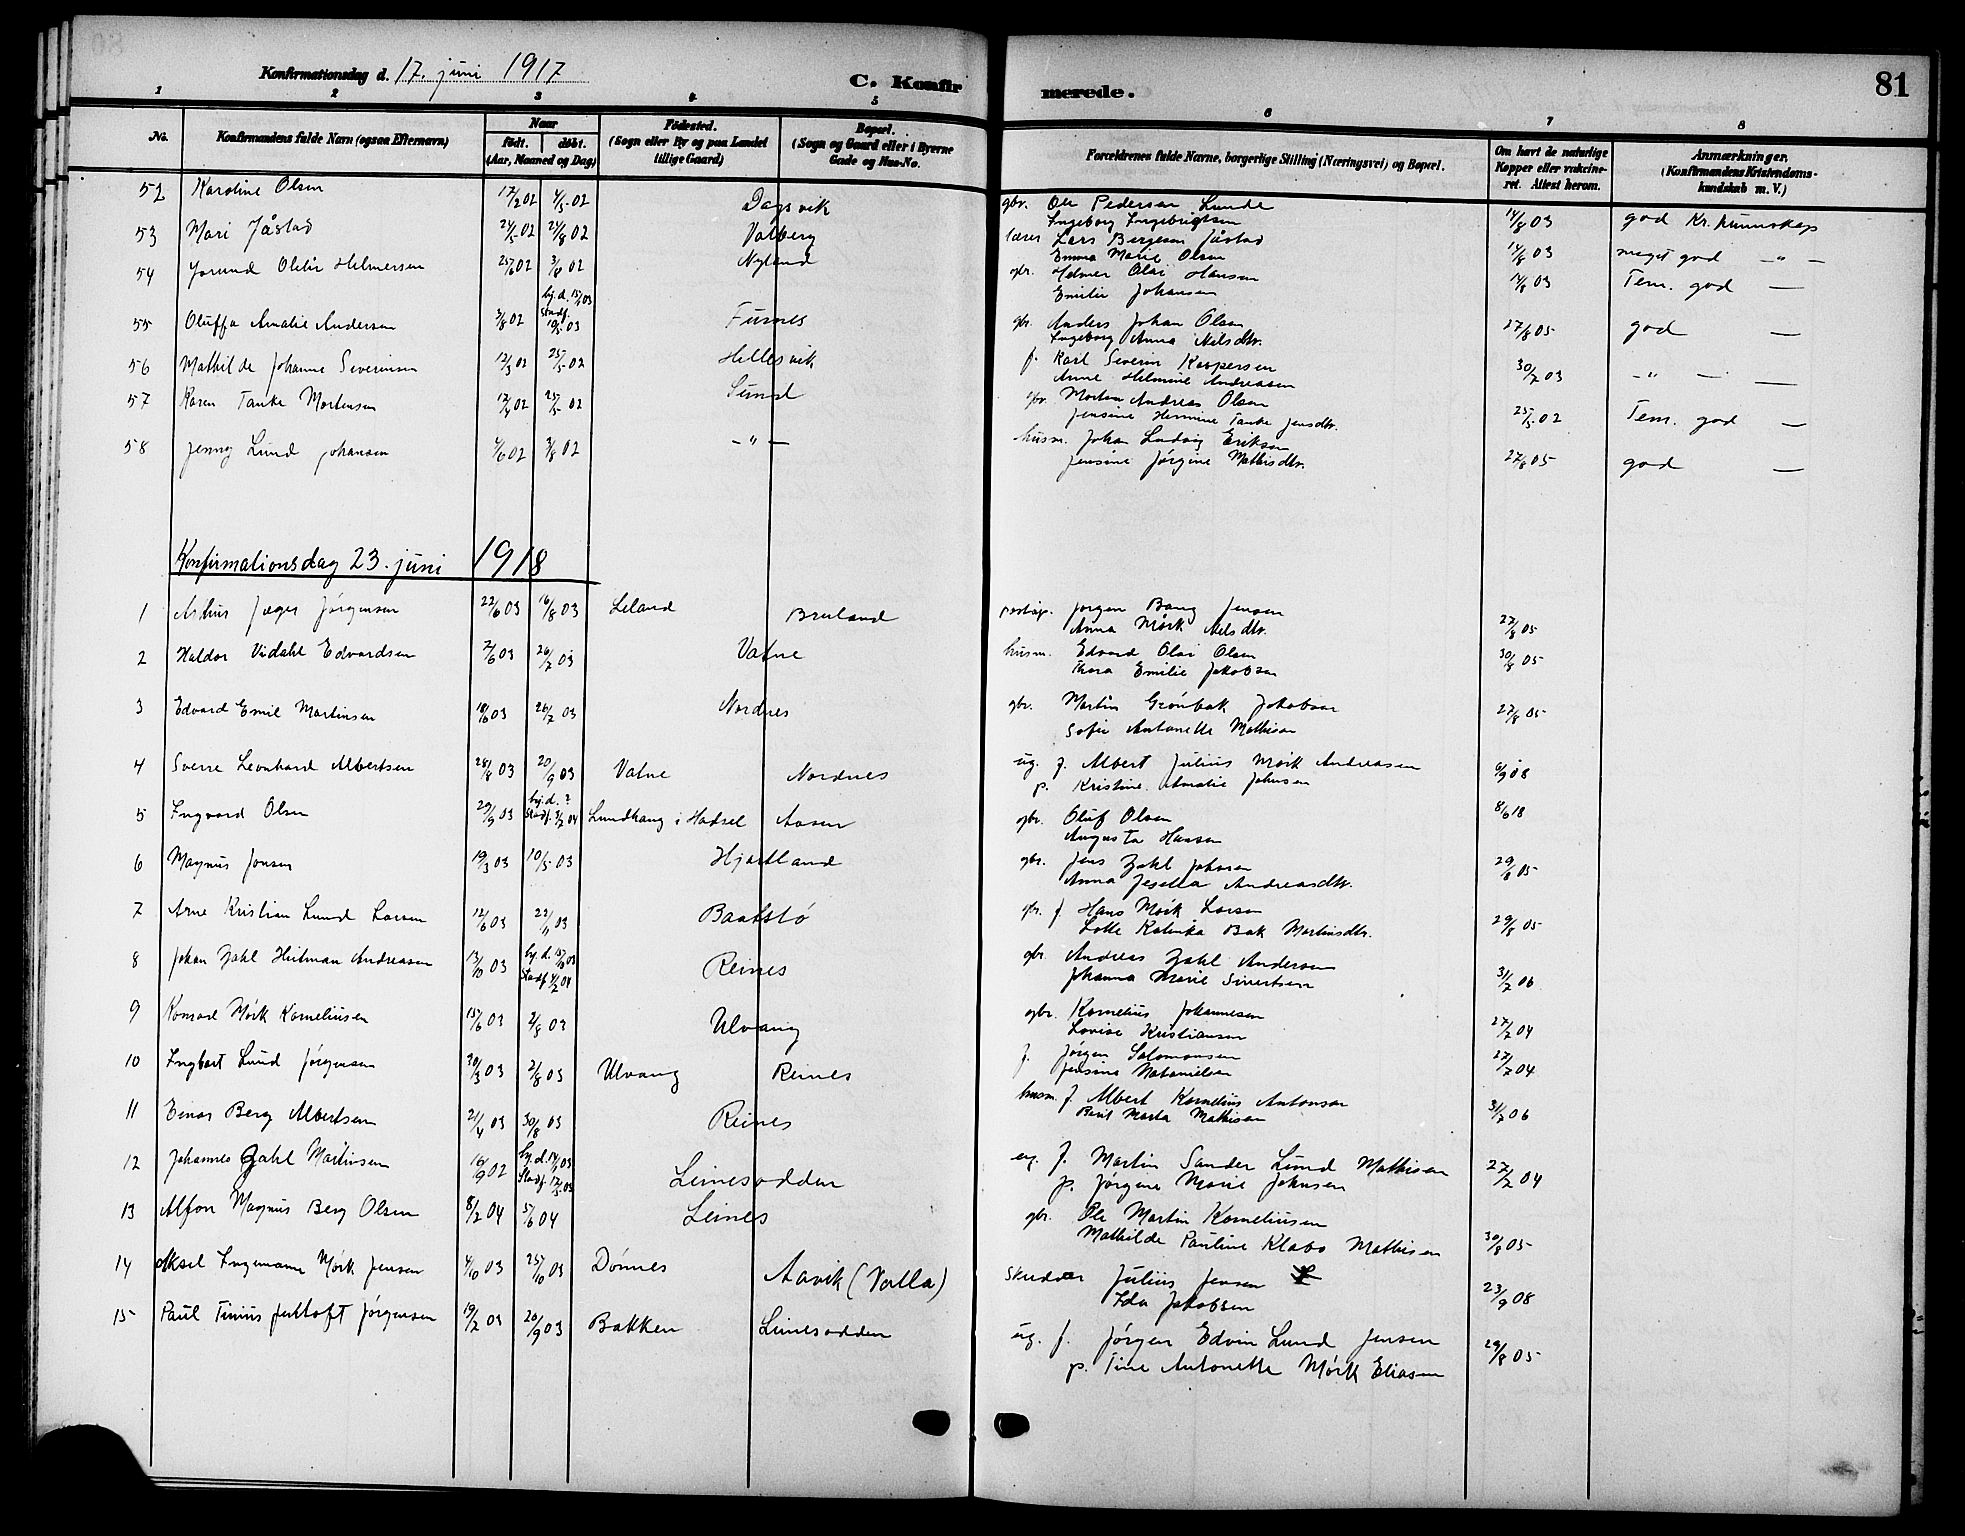 Konfirmationsdag d. 17. juni 1917
C. Konfirmerede.
81
1 2 3 4 5 6 7 8
No.
Konfirmandens fulde Navn (ogsaa Efternavn)
Naar
født. døbt.
(Aar, Maaned og Dag)
Fødested.
(Sogn eller By og paa Landet
tillige Gaard)
Bopæl.
(Sogn og Gaard eller i Byerne
Gade og Hus-No.
Forældrenes fulde Navne, borgerlige Stilling (Næringsvei) og Bopæl.
Om havt de naturlige
Kopper eller vakcine-
ret. Attest herom.
Anmærkninger.
(Konfirmandens Kristendoms-
kundskab m. V.)
52 Karoline Olsen 17/2 02 4/5-02 Dagsvik gbr. Ole Pedersen Lunde 14/8 03 god Kr. kunnskap
Ingeborg Ingebrigtsen
53 Mari Jåstad 24/5-02 24/8 02 Valberg lærer Lars Bergesen Jåstad 14/8 03 meget god — " —
Emma Marie Olsen
54 Jorund Oldir Helmersen 25/6 02 3/8 02 Nyland gbr. Helmer Olai Hansen 14/8 03 Tem. god —
Emilie Johansen
55 Oluffa Amalie Andersen 3/8 02 hj. d. 15/1 03 Stadf. 10/5-03 Furnes gbr. Anders Johan Olsen 27/8 05 god —
Ingeborg Anna Nilsdtr.
56 Mathilde Johanne Severinsen 12/3 02 25/5-02 Hellesvik f. Karl Severin Kaspersen 30/7 03 — " — —
Anne Helmine Andreasen
57 Karen Tanke Mortensen 17/4 02 25/5-02 Sund gbr. Morten Andreas Olsen 25/5-02 Tem. god —
Jensine Hermine Tanke Jensdtr.
58 Jenny Lund Johansen 4/6 02 3/8 02 — " — husm. Johan Ludvig Eriksen 27/8 05 god —
Jensine Jørgine Mathisdtr.
Konfirmationsdag 23. juni 1918
1 Arthur Jæger Jørgensen 22/6 03 16/8 03 Leland Breiland poståp. Jørgen Bang Jensen 27/8 05
Anna Mørk Nelsdtr.
2 Haldor Vidahl Edvardsen 7/6 03 26/7 03 Vatne husm. Edvard Olai Olsen 30/8 05
Thora Emilie Jakobsen
3 Edvard Emil Martinsen 18/6 03 26/7 03 Nordnes gbr. Martin Grønbæk Jakobsen 27/8 05
Sofie Antonette Mathisen
4 Sverre Leonhard Albertsen 28/8 03 20/9 03 Vatne Nordnes ug. f. Albert Julius Mørk Andreasen 6/9 08
p. Kristine Amalie Johnsen
5 Ingvard Olsen 29/9 03 hj. d. ? Stadf. 3/2 04 Lundhaug i Hadsel Aasen gbr. Oluf Olsen 8/6 18
Augusta Hansen
6 Magnus Jensen 19/3 03 10/5-03 Hjartland gbr. Jens Zahl Johnsen 29/8 05
Anna Jesella Andreasdtr.
7 Arne Kristian Lund Larsen 12/6 03 22/11 03 Baatstø gbr. f Hans Mørk Larsen 29/8 05
Lotte Katinka Bak Martinsdtr.
8 Johan Zahl Heitman Andreasen 13/10 03 hj. d. 15/10 03 Stadf. 4/2 04 Reines gbr. Andreas Zahl Andersen 31/7 06
Johanna Marie Sivertsen
9 Konrad Mørk Korneliusen 15/6 03 2/8 03 Ulvang gbr. Kornelius Johannesen 27/7 04
Lovise Kristiansen
10 Ingbart Lund Jørgensen 30/3 03 2/8 03 Ulvang Reines f. Jørgen Salomonsen 27/7 04
Jensine Natanielsen
11 Einar Berg Albertsen 21/4 03 30/8 03 Reines husm. f. Albert Kornelius Antonsen 31/7 06
Berit Marta Mathisen
12 Johannes Zahl Martinsen 16/9 02 hj. d. 14/1 03 Stadf. 17/5-03 Leinesodden ug. f. Martin Sander Lund Mathisen 27/7 04
p. Jørgine Marie Johnsen
13 Alfon Magnus Berg Olsen 8/2 04 5/6 04 Leines gbr. Ole Martin Korneliusen 30/8 05
Mathilde Pauline Klabo Mathisen
14 Aksel Ingemann Mørk Jensen 4/10 03 25/10 03 Dønnes Aavik (Valla) Skredder Julius Jensen 23/9 08
Ida Jakobsen
15 Paul Tinius Jentoft Jørgensen 19/7 03 20/9 03 Bakken Leinesodden ug. f. Jørgen Edvin Lund Jensen 29/8 05
p. Tine Antonette Mørk Eliasen